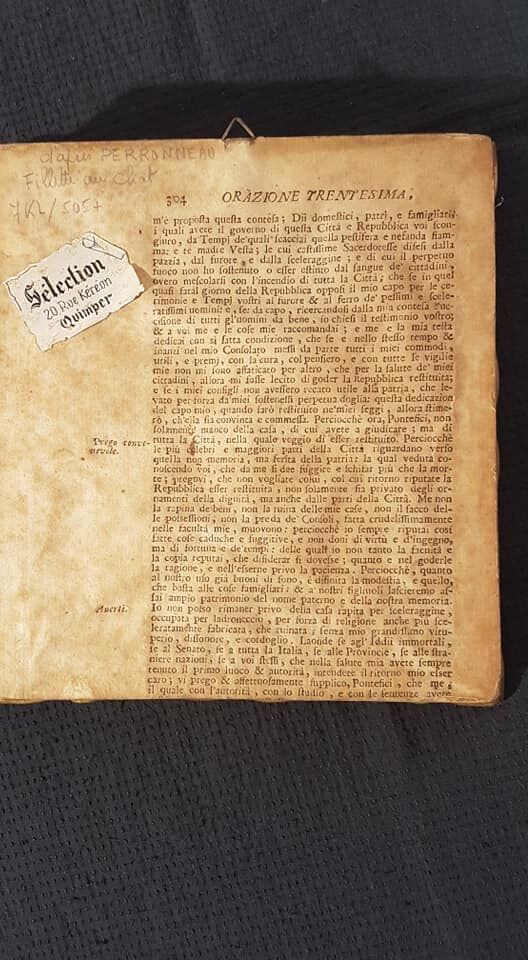 d'après PERRONNEAU
Fillette au chat
7KL/505+
Sélection
20 Rue Kéréon
Quimper
304 ORAZIONE TRENTESIMA.
m'è proposta questa contesa; Dii domestici, patrj, e famigliari;
i quali avete il governo di questa Città e Repubblica voi scon-
giuro, da Tempj de'quali scacciai quella pestifera e nefanda fiam-
ma: e te madre Vesta; le cui castissime Sacerdotesse difesi dalla
pazzia, dal furore, e dalla sceleraggine; e di cui il perpetuo
fuoco non ho sostenuto o esser estinto dal sangue de' cittadini,
overo mescolarsi con l'incendio di tutta la Città; che se in quel
quasi fatal giorno della Repubblica opposi il mio capo per le ce-
rimonie e Tempj vostri al furore & al ferro de' pessimi e scele-
ratissimi uomini: e, sei da capo, ricercandosi dalla mia contesa l'uc-
cisione di tutti gl'uomini da bene, io chiesi il testimonio vostro;
& a voi me e le cose mie raccomandai; e me e la mia testa
dedicai con sì fatta condizione, che se e nello stesso tempo &
inanzi nel mio Consolato messi da parte tutti i miei commodi,
utili, e premj, con la cura, col pensiero, e con tutte le vigilie
mie non mi sono affaticato per altro, che per la salute de' miei
cittadini, allora mi fosse lecito di goder la Repubblica restituita;
e se i miei consigli non avessero recato utile alla patria, che le-
vato per forza da'miei sostenessi perpetua doglia: questa dedicazione
del capo mio, quando sarò restituito ne'miei seggi, allora stime-
rò, ch'ella sia convinta e commessa. Perciocchè ora, Pontefici, non
solamente manco della casa, di cui avete a giudicare; ma di
Prego conve-
nevole.
tutta la Città, nella quale veggio di esser restituito. Perciocchè
le più celebri e maggiori parti della Città riguardano verso
quella non memoria, ma ferita della patria: la qual veduta co-
noscendo voi, che da me si dee fuggire e schifar più che la mor-
te; pregovi, che non vogliate colui, col cui ritorno riputate la
Repubblica esser restituita, non solamente sia privato degli or-
namenti della dignità, ma anche dalle parti della Città. Me non
la rapina de'beni, non la ruina delle mie case, non il sacco del-
le possessioni, non la preda de' Consoli, fatta crudelissimamente
nelle facultà mie, muovono: perciocchè io sempre riputai così
fatte cose caduche e fuggitive, e non doni di virtù e d'ingegno,
ma di fortuna e de'tempi: delle quali io non tanto la facultà e
la copia reputai, che desiderar si dovesse; quanto e nel goderle
la ragione, e nell'esserne privo la pacienza. Perciocchè, quanto
al nostro uso già buoni di sono, è difinita la modestia, e quello,
che basta alle cose famigliari: & a nostri figliuoli lascieremo as-
sai ampio patrimonio del nome paterno e della nostra memoria.
Averti.
Io non posso rimaner privo della casa rapita per sceleraggine,
occupata per ladroneccio, per forza di religione anche più sce-
leratamente fabricata, che ruinata; senza mio grandissimo vitu-
perio, disonore, e cordoglio. Laonde se agl' Iddii immortali,
se al Senato, se a tutta la Italia, se alle Provincie, se alle stra-
niere nazioni, se a voi stessi, che nella salute mia avete sempre
tenuto il primo luoco & autorità, intendere il ritorno mio esser
caro; vi prego & affettuosamente supplico, Pontefici, che me,
il quale con l'autorità, con lo studio, e con le sentenze avete